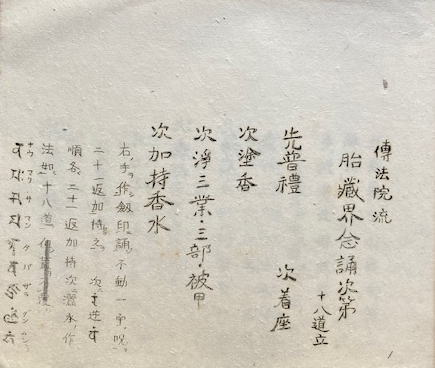 傳法院流
胎藏界念誦次第 十八道立
先普禮 次着座
次塗香
次淨三業・三部・被甲
次加持香水
右ノ手作劔印誦不動一字ノ呪ヲ
二十一返加持ス之 次 逆
順各二十一返加持次灑水ノ作
法如十八道